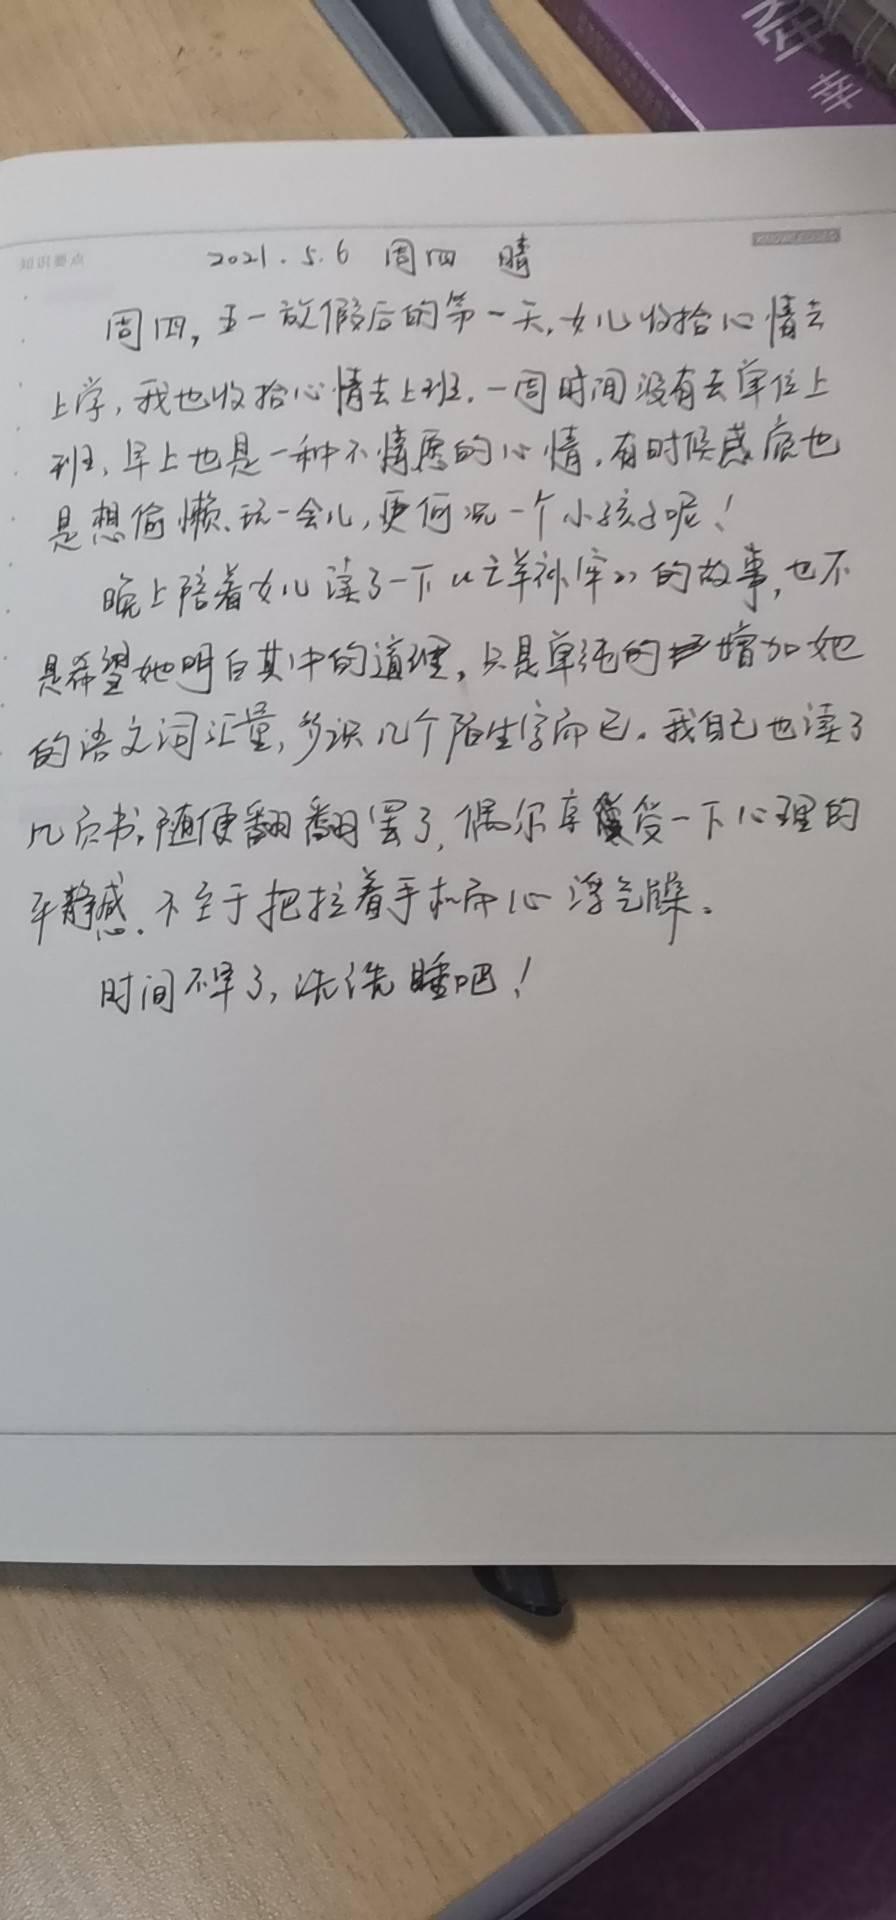 2021.5.6 周四 晴
周四,五一放假后的第一天,女儿收拾心情去
上学,我也收拾心情去上班.一周时间没有去单位上
班,早上也是一种不情愿的心情,有时候感底也
是想偷懒、玩一会儿,更何况一个小孩子呢!
晚上陪着女儿读了一下《亡羊补牢》的故事,也不
是希望她明白其中的道理,只是单纯的增加她
的语文词汇量,多识几个陌生字而已。我自己也读了
几页书,随便翻翻罢了,偶尔享受一下心理的
平静感.不至于把拉着手机而心浮气燥。
时间不早了,洗洗睡吧!